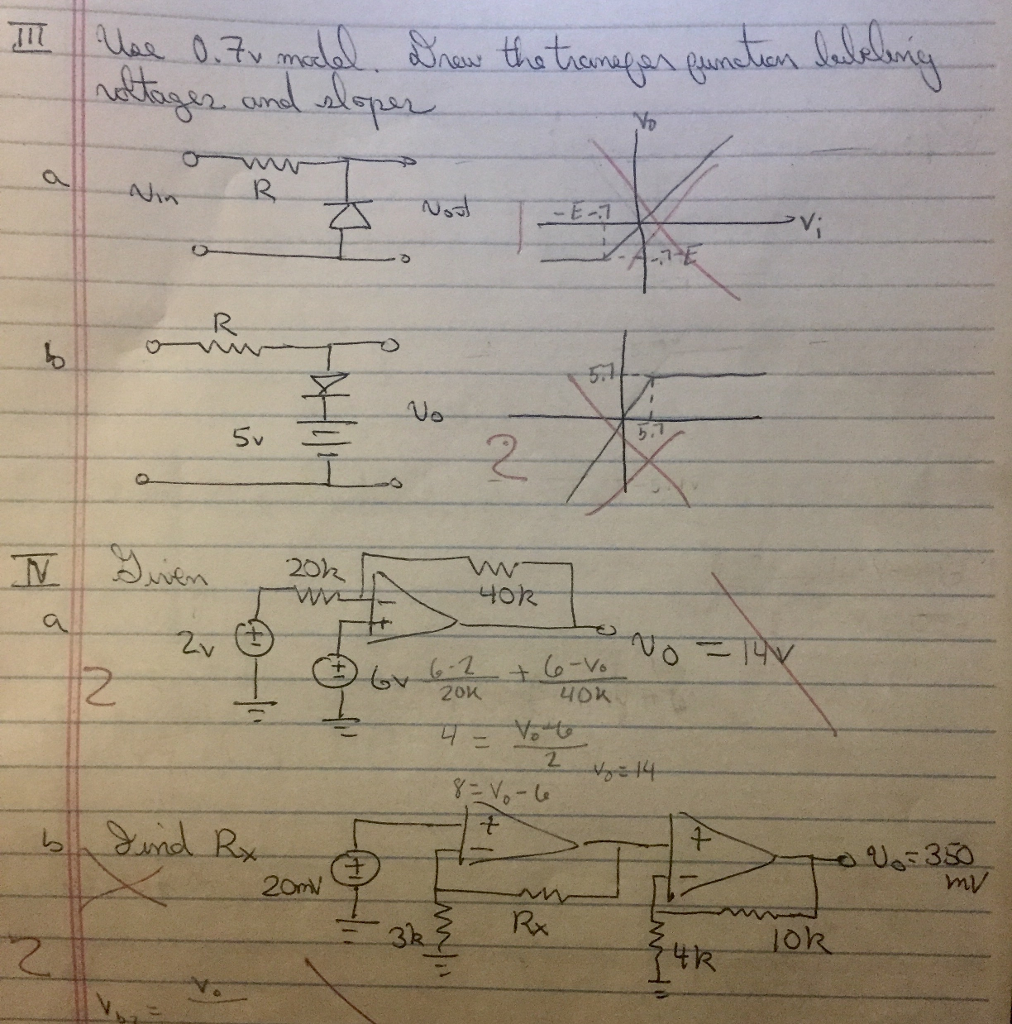 III Use 0.7v model. Draw the transfer function labeling
voltages and slopes
a
Vin
R
Vout
Vo
Vi
-E-.7
-.7-E
b
R
5v
Vo
5.7
5.7
2
IV Given
a
20k
40k
2v
6v
Vo = 14v
6-2/20k + 6-Vo/40k
4 = Vo-6/2
Vo=14
8=Vo-6
2
b Find Rx
20mV
3k
Rx
4k
10k
Vo=350
mV
2
Vb2 = Vo